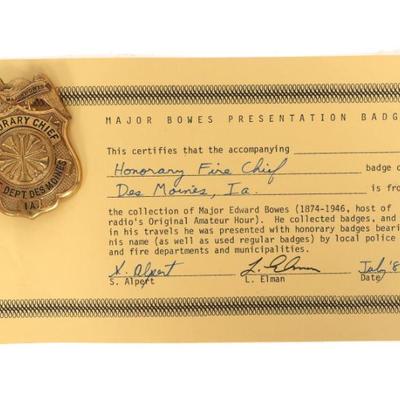 ORARY CHIEF
DEPT. DES MOINES
IA.
MAJOR BOWES PRESENTATION BADG
This certifies that the accompanying
Honorary Fire Chief badge o
Des Moines, Ia. is fro
the collection of Major Edward Bowes (1874-1946, host of
radio's Original Amateur Hour). He collected badges, and
in his travels he was presented with honorary badges bearin
his name (as well as used regular badges) by local police
and fire departments and municipalities.
S. Alpert L. Elman July '8
S. Alpert L. Elman Date